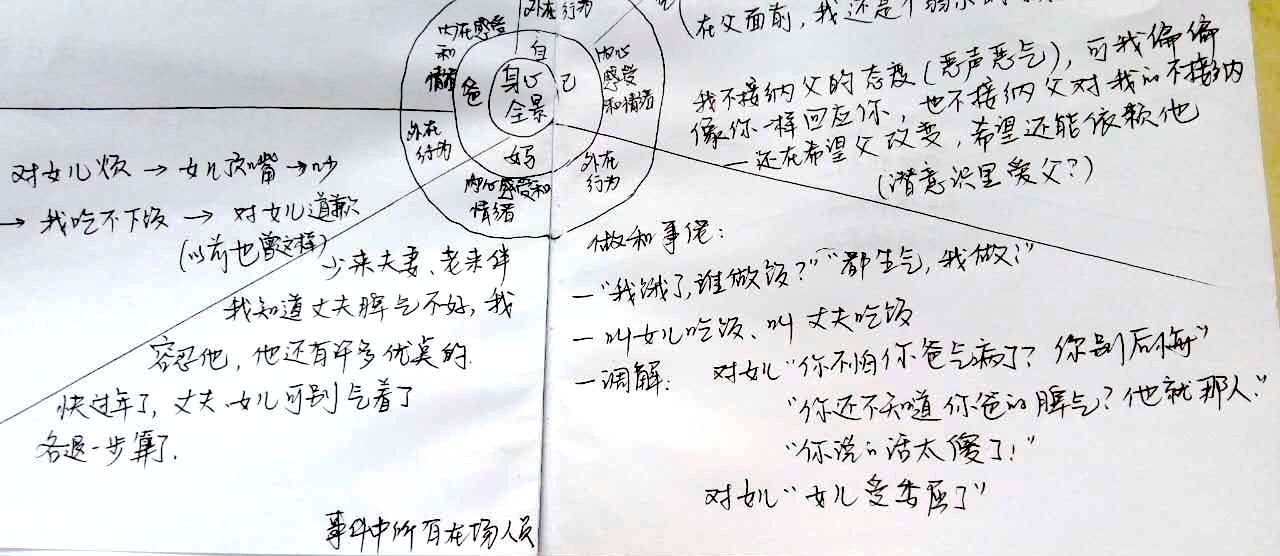 外在行为
内在感受
和
情绪
自
己
爸
妈
身心
全景
内心
感受
和情绪
外在
行为
外在
行为
内心感受和
情绪
在父面前，我还是个弱小的
我不接纳父的态度（恶声恶气），可我偏偏
像你一样回应你，也不接纳父对我的不接纳
—还在希望父改变，希望还能依赖他
（潜意识里爱父？）
对女儿烦→女儿顶嘴→吵
→我吃不下饭→对女儿道歉
（以前也曾这样）
少来夫妻、老来伴
我知道丈夫脾气不好，我
容忍他，他还有许多优点的.
快过年了，丈夫、女儿可别气着了
各退一步算了.
事件中所有在场人员
做和事佬：
—“我饿了，谁做饭？”“都生气，我做？”
—叫女儿吃饭、叫丈夫吃饭
—调解：对女儿“你不怕你爸气病了？你别后悔”
“你还不知道你爸的脾气？他就那人.”
“你说的话太傻了！”
对女儿“女儿受委屈了”